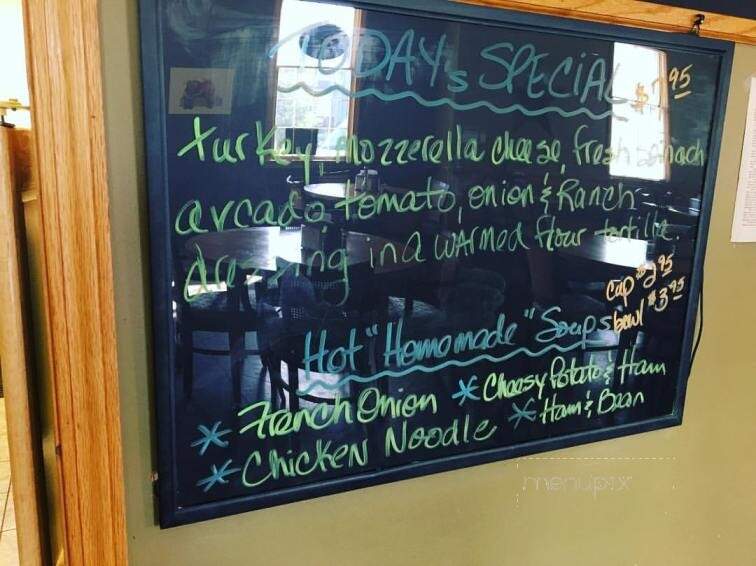 TODAY's SPECIAL $7.95
turkey, mozzerella cheese, fresh spinach
avcado, tomato, onion & Ranch
dressing in a warmed flour tortilla.
Hot "Homemade" Soups
cup $2.95
bowl $3.95
* French Onion * Cheesy Potato & Ham
* Chicken Noodle * Ham & Bean
menupix